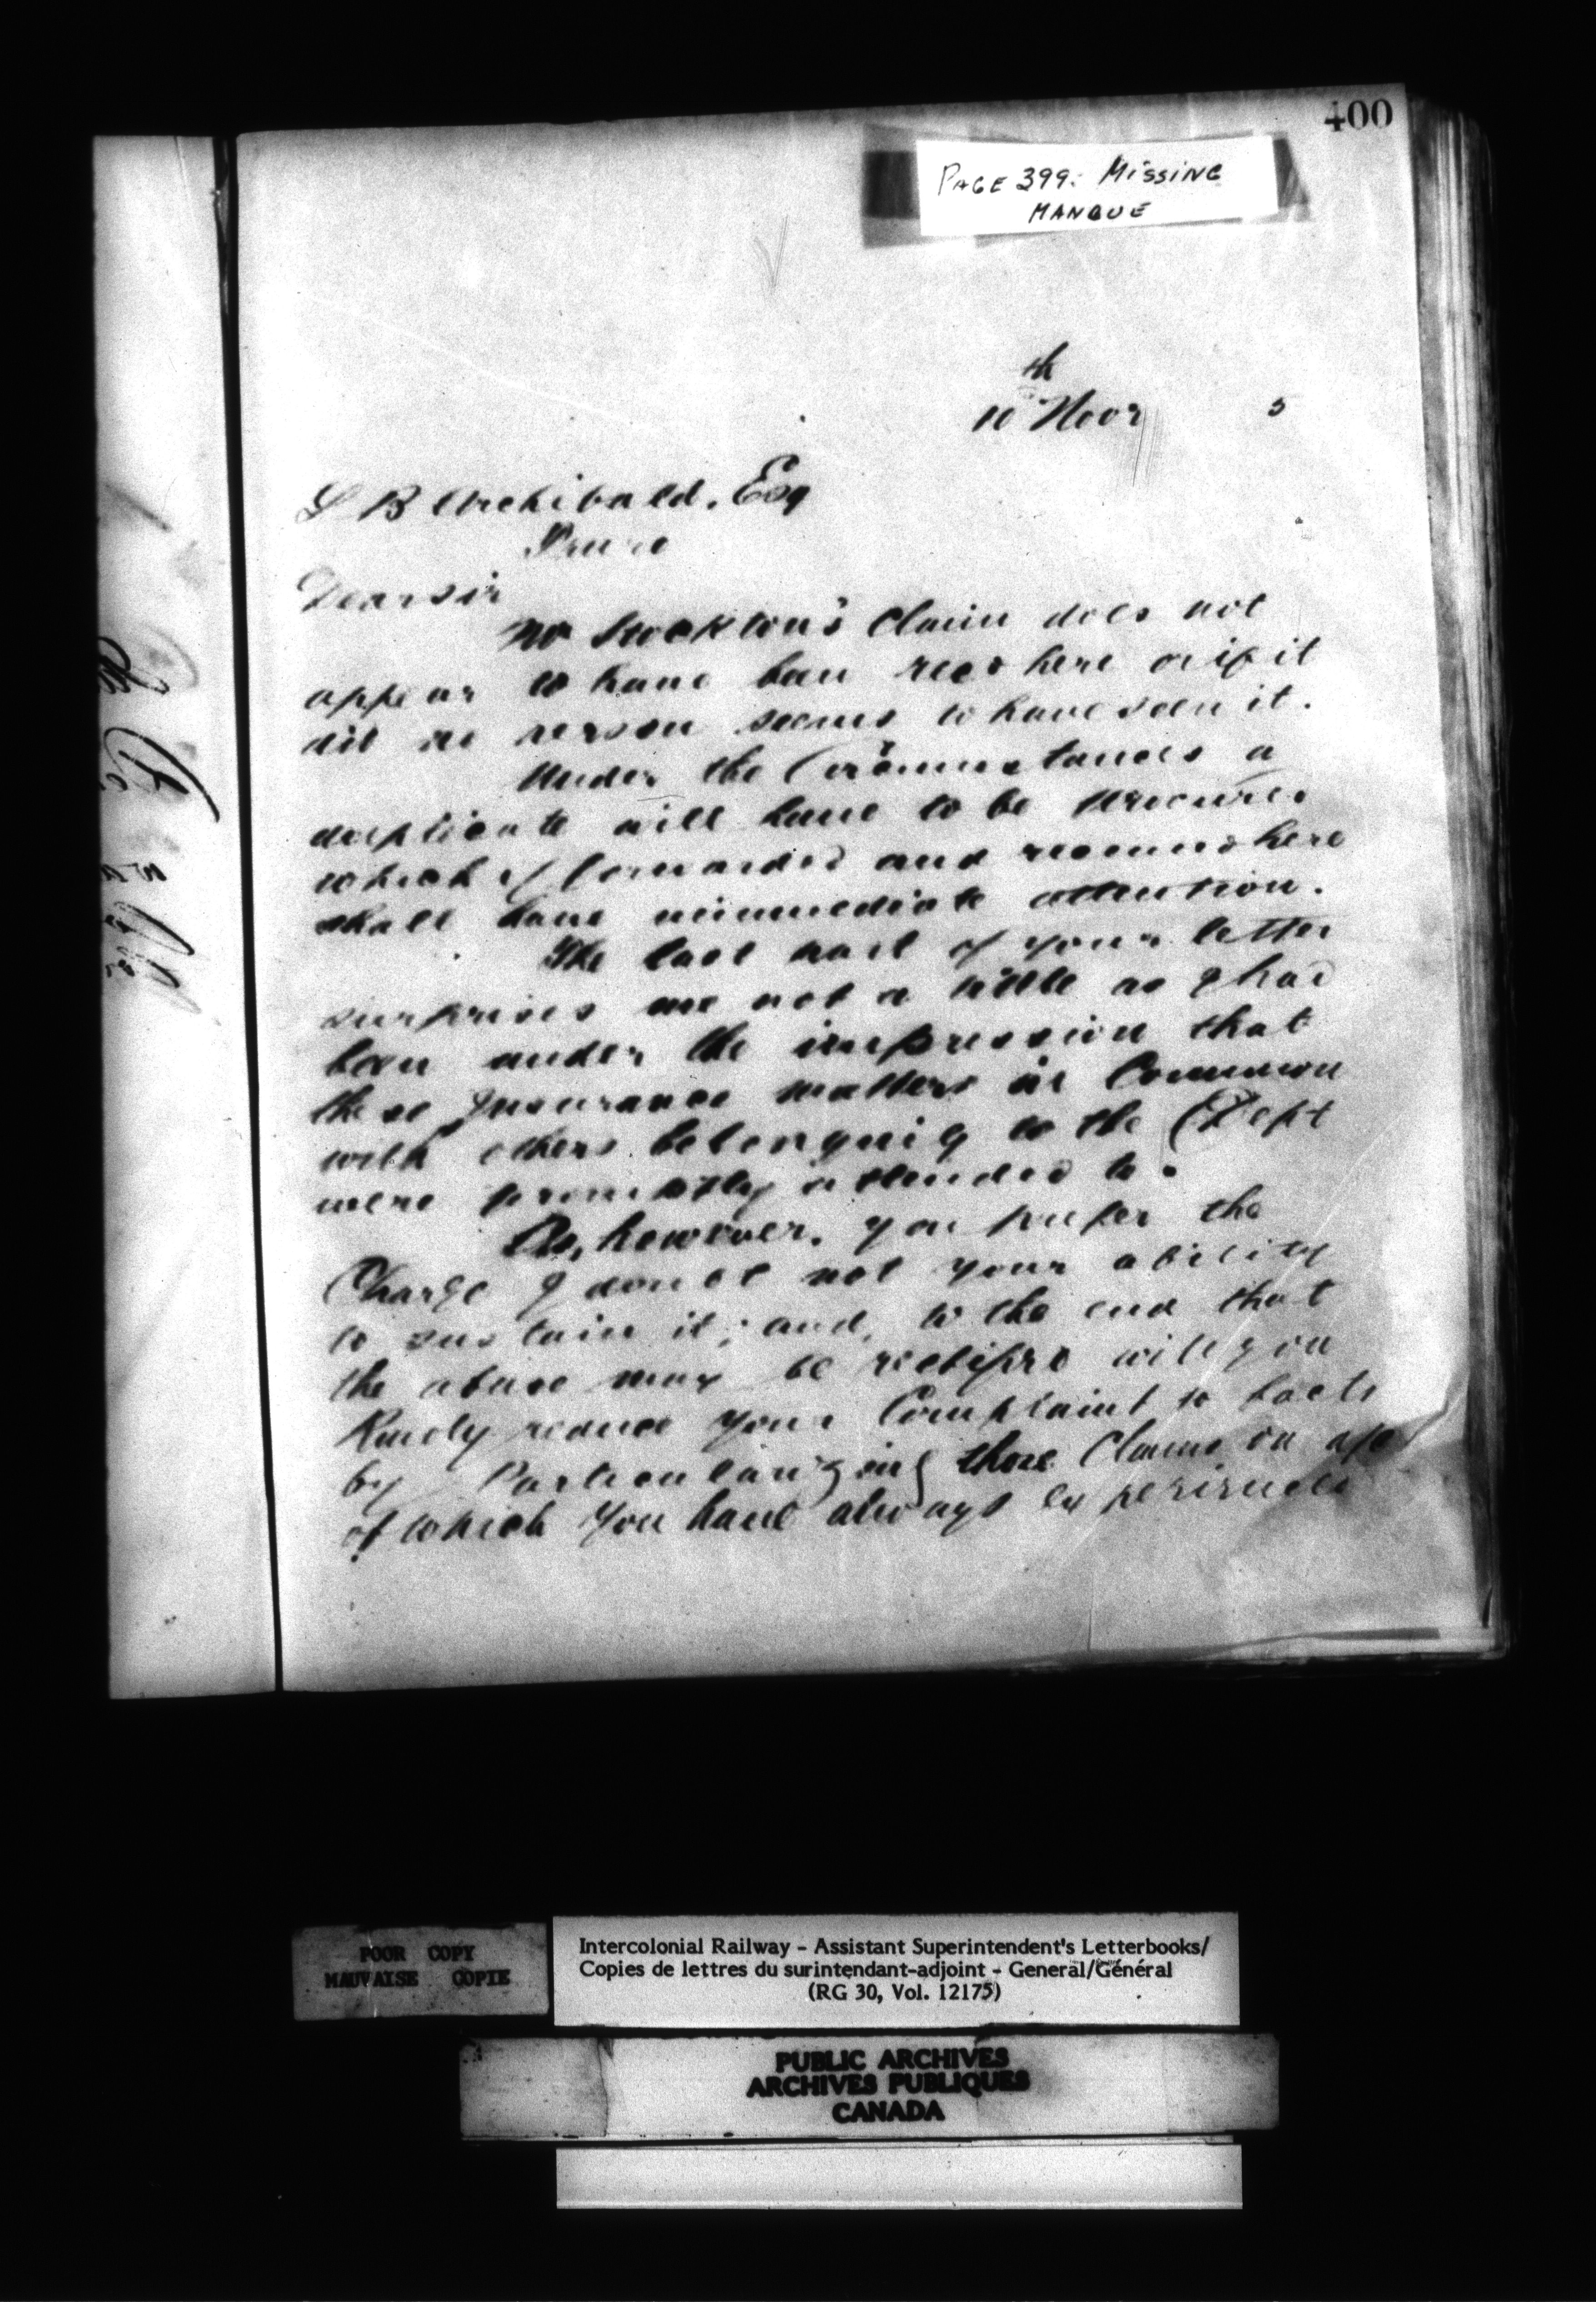 400
PAGE 399: MISSING
MANQUE
10th Novr 5
L B Archibald, Esq
Truro
Dear Sir
Mr Stockton's Claim does not
appear to have been recd here or if it
did no person seems to have seen it.
Under the Circumstances a
duplicate will have to be procured
which if forwarded and received here
shall have immediate attention.
The last part of your letter
surprises me not a little as I had
been under the impression that
these Insurance matters in Common
with others belonging to the Dept
were promptly attended to.
As, however, you prefer the
Charge I doubt not your ability
to sustain it; and, to the end that
the abuse may be rectified will you
Kindly reduce your Complaint to facts
by Particularizing those Claims in
of which You have always experienced
POOR COPY
MAUVAISE COPIE
Intercolonial Railway - Assistant Superintendent's Letterbooks/
Copies de lettres du surintendant-adjoint - General/Général
(RG 30, Vol. 12175)
PUBLIC ARCHIVES
ARCHIVES PUBLIQUES
CANADA